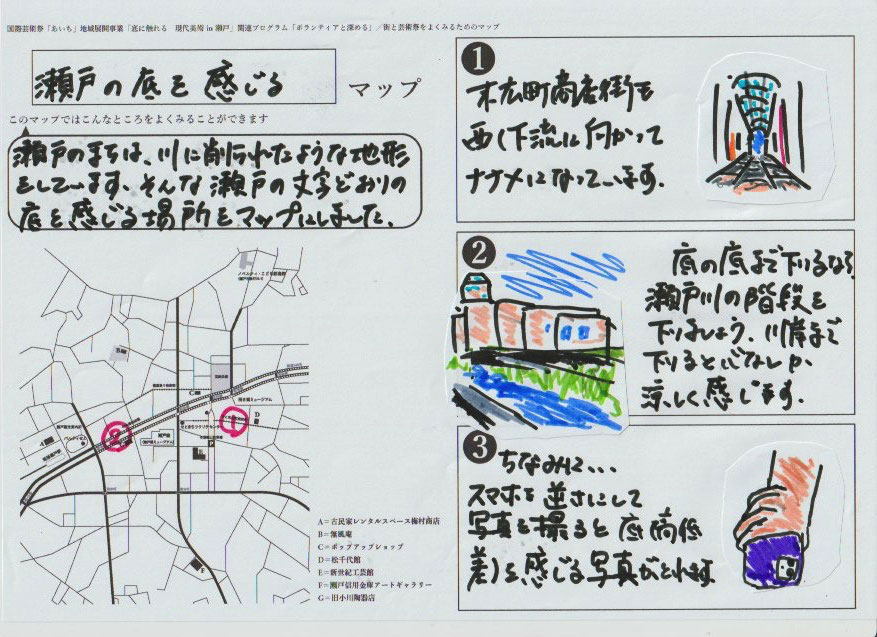 国際芸術祭「あいち」地域展開事業「底に触れる 現代美術 in 瀬戸」関連プログラム「ボランティアと深める」／街と芸術祭をよくみるためのマップ
瀬戸の底を感じる
マップ
このマップではこんなところをよくみることができます
瀬戸のまちは、川に削られたような地形
をしています。そんな瀬戸の文字どおりの
底を感じる場所をマップにしました。
ノベルティ・こども創造館
B
C
D
A
E
①
②
A＝古民家レンタルスペース梅村商店
B＝無風庵
C＝ポップアップショップ
D＝松千代館
E＝新世紀工芸館
F＝瀬戸信用金庫アートギャラリー
G＝旧小川陶器店
1
末広町商店街も
西(下流)に向かって
ナナメになっています。
2
底の底まで下りるなら
瀬戸川の階段を
下りましょう。川岸まで
下りると心なしか
涼しく感じます。
3
ちなみに...
スマホを逆さにして
写真を撮ると底高低
差)を感じる写真がとれます